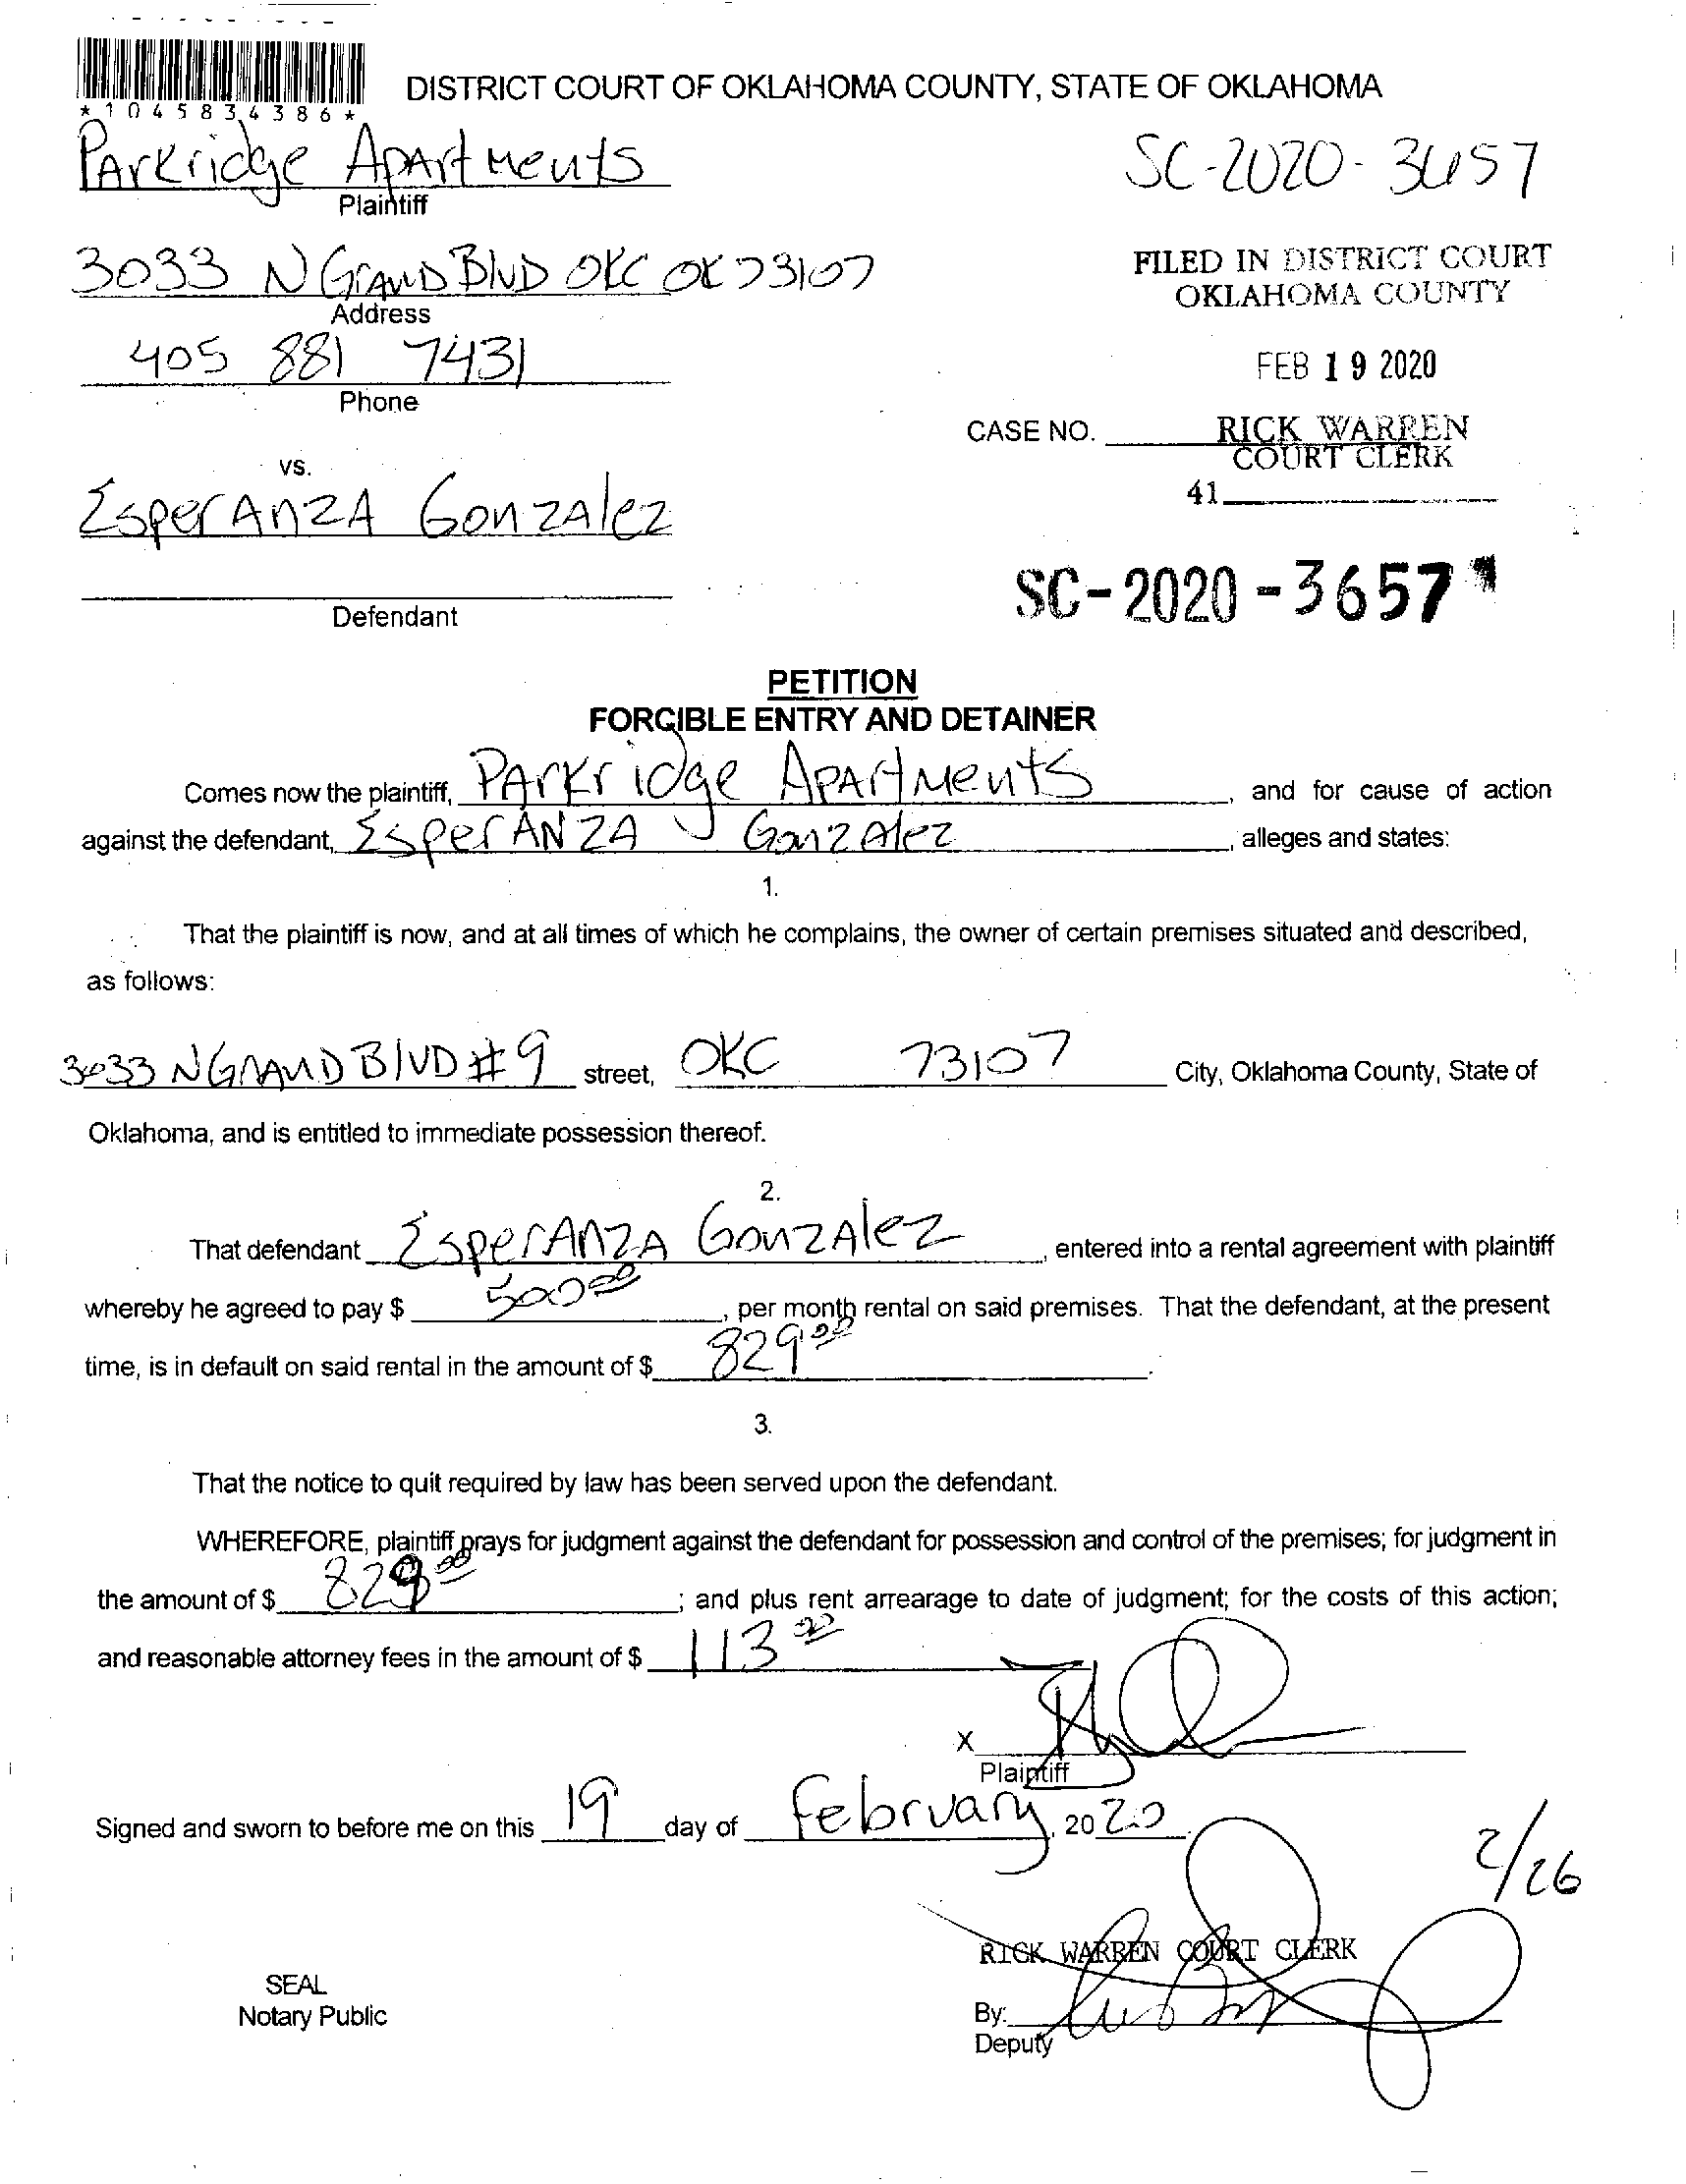 *1045834386*
DISTRICT COURT OF OKLAHOMA COUNTY, STATE OF OKLAHOMA
Parkridge Apartments
Plaintiff
SC-2020-3657
3033 N Grand Blvd OKC OK 73107
Address
FILED IN DISTRICT COURT
OKLAHOMA COUNTY
405 881 7431
Phone
FEB 19 2020
CASE NO.
RICK WARREN
COURT CLERK
41
vs.
Esperanza Gonzalez
Defendant
SC-2020-3657
PETITION
FORCIBLE ENTRY AND DETAINER
Comes now the plaintiff, Parkridge Apartments, and for cause of action
against the defendant, Esperanza Gonzalez, alleges and states:
1.
That the plaintiff is now, and at all times of which he complains, the owner of certain premises situated and described,
as follows:
3033 N Grand Blvd #9 street, OKC 73107 City, Oklahoma County, State of
Oklahoma, and is entitled to immediate possession thereof.
2.
That defendant Esperanza Gonzalez, entered into a rental agreement with plaintiff
whereby he agreed to pay $ 500.00, per month rental on said premises. That the defendant, at the present
time, is in default on said rental in the amount of $ 829.00.
3.
That the notice to quit required by law has been served upon the defendant.
WHEREFORE, plaintiff prays for judgment against the defendant for possession and control of the premises; for judgment in
the amount of $ 829.00; and plus rent arrearage to date of judgment; for the costs of this action;
and reasonable attorney fees in the amount of $ 113.00
X
Plaintiff
Signed and sworn to before me on this 19 day of February, 2020.
2/26
RICK WARREN COURT CLERK
SEAL
Notary Public
By:
Deputy